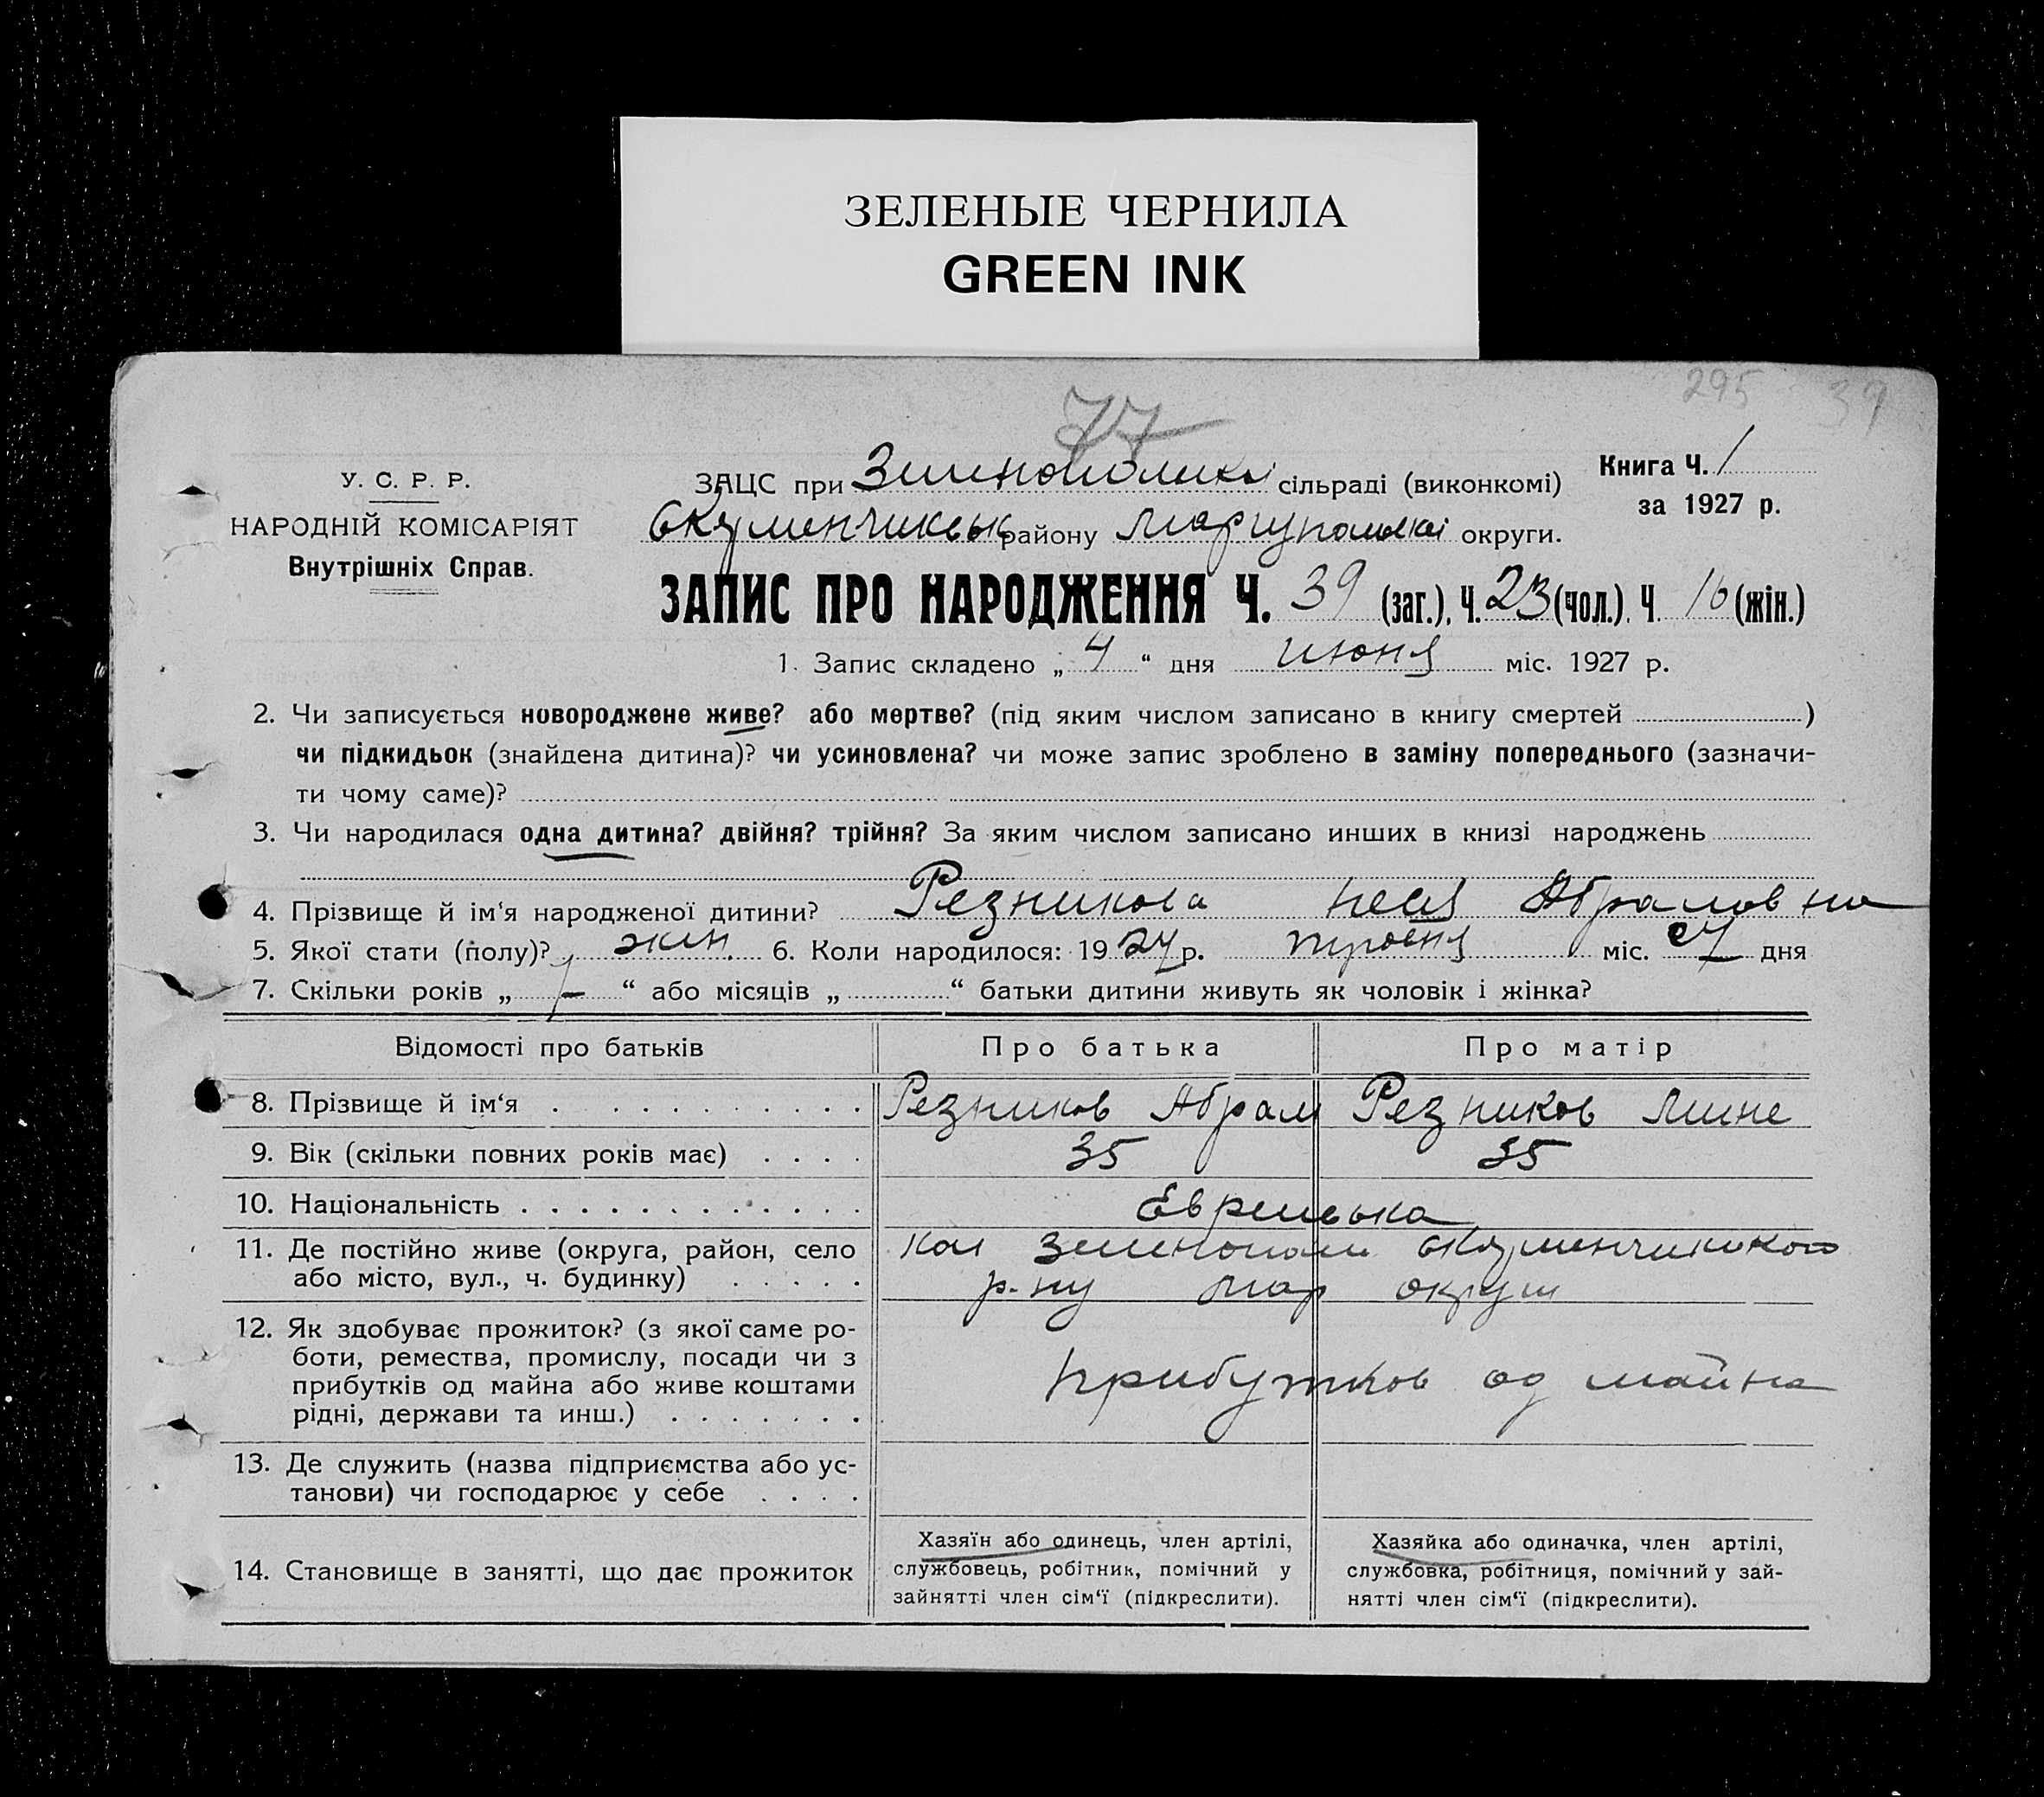 ЗЕЛЕНЫЕ ЧЕРНИЛА
GREEN INK
295 39
77
У. С. Р. Р.
НАРОДНІЙ КОМІСАРІЯТ
Внутрішніх Справ.
ЗАЦС при сільраді (виконкомі)
району округи.
Книга Ч. 1
за 1927 р.
ЗАПИС ПРО НАРОДЖЕННЯ Ч. 39 (заг.), Ч. 23 (чол.), Ч. 16 (жін.)
1. Запис складено „ 4 “ дня июня міс. 1927 р.
2. Чи записується новороджене живе? або мертве? (під яким числом записано в книгу смертей )
чи підкидьок (знайдена дитина)? чи усиновлена? чи може запис зроблено в заміну попереднього (зазначи-
ти чому саме)?
3. Чи народилася одна дитина? двійня? трійня? За яким числом записано инших в книзі народжень
4. Прізвище й ім‘я народженої дитини? Резникова Абрамовна
5. Якої стати (полу)? жін. 6. Коли народилося: 19 р. міс. дня
7. Скільки років „ — “ або місяців „ “ батьки дитини живуть як чоловік і жінка?
Відомості про батьків Про батька Про матір
8. Прізвище й ім‘я Резников Абрам Резников
9. Вік (скільки повних років має) 35 35
10. Національність Еврейська
11. Де постійно живе (округа, район, село
або місто, вул., ч. будинку) р-ну мар округи
12. Як здобуває прожиток? (з якої саме ро-
боти, ремества, промислу, посади чи з
прибутків од майна або живе коштами
рідні, держави та инш.) прибутков од майна
13. Де служить (назва підприємства або ус-
танови) чи господарює у себе
14. Становище в занятті, що дає прожиток
Хазяїн або одинець, член артілі,
службовець, робітник, помічний у
зайнятті член сім‘ї (підкреслити).
Хазяйка або одиначка, член артілі,
службовка, робітниця, помічний у зай-
нятті член сім‘ї (підкреслити).